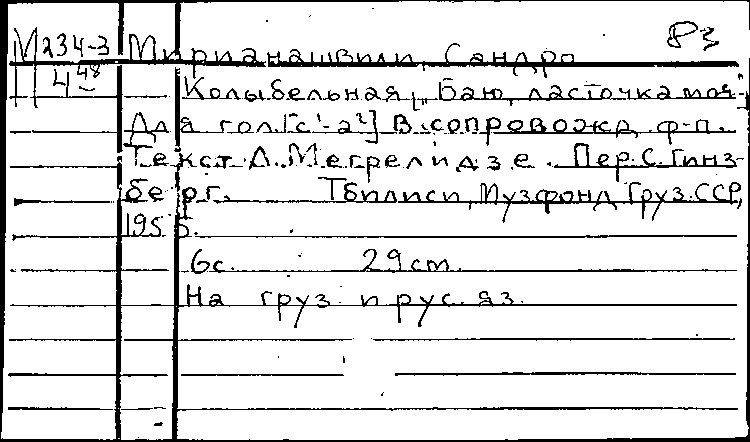 М 234-3 Мирианашвили, Сандро 83
4 48
Колыбельная [„Баю, ласточка моя"]
Для гол. [c¹-a²] в сопровожд. ф-п.
Текст Д. Мегрелидзе. Пер. С. Гинз-
берг. Тбилиси, Музфонд Груз. ССР,
1955.
6с. 29 cm.
На груз и рус. яз.